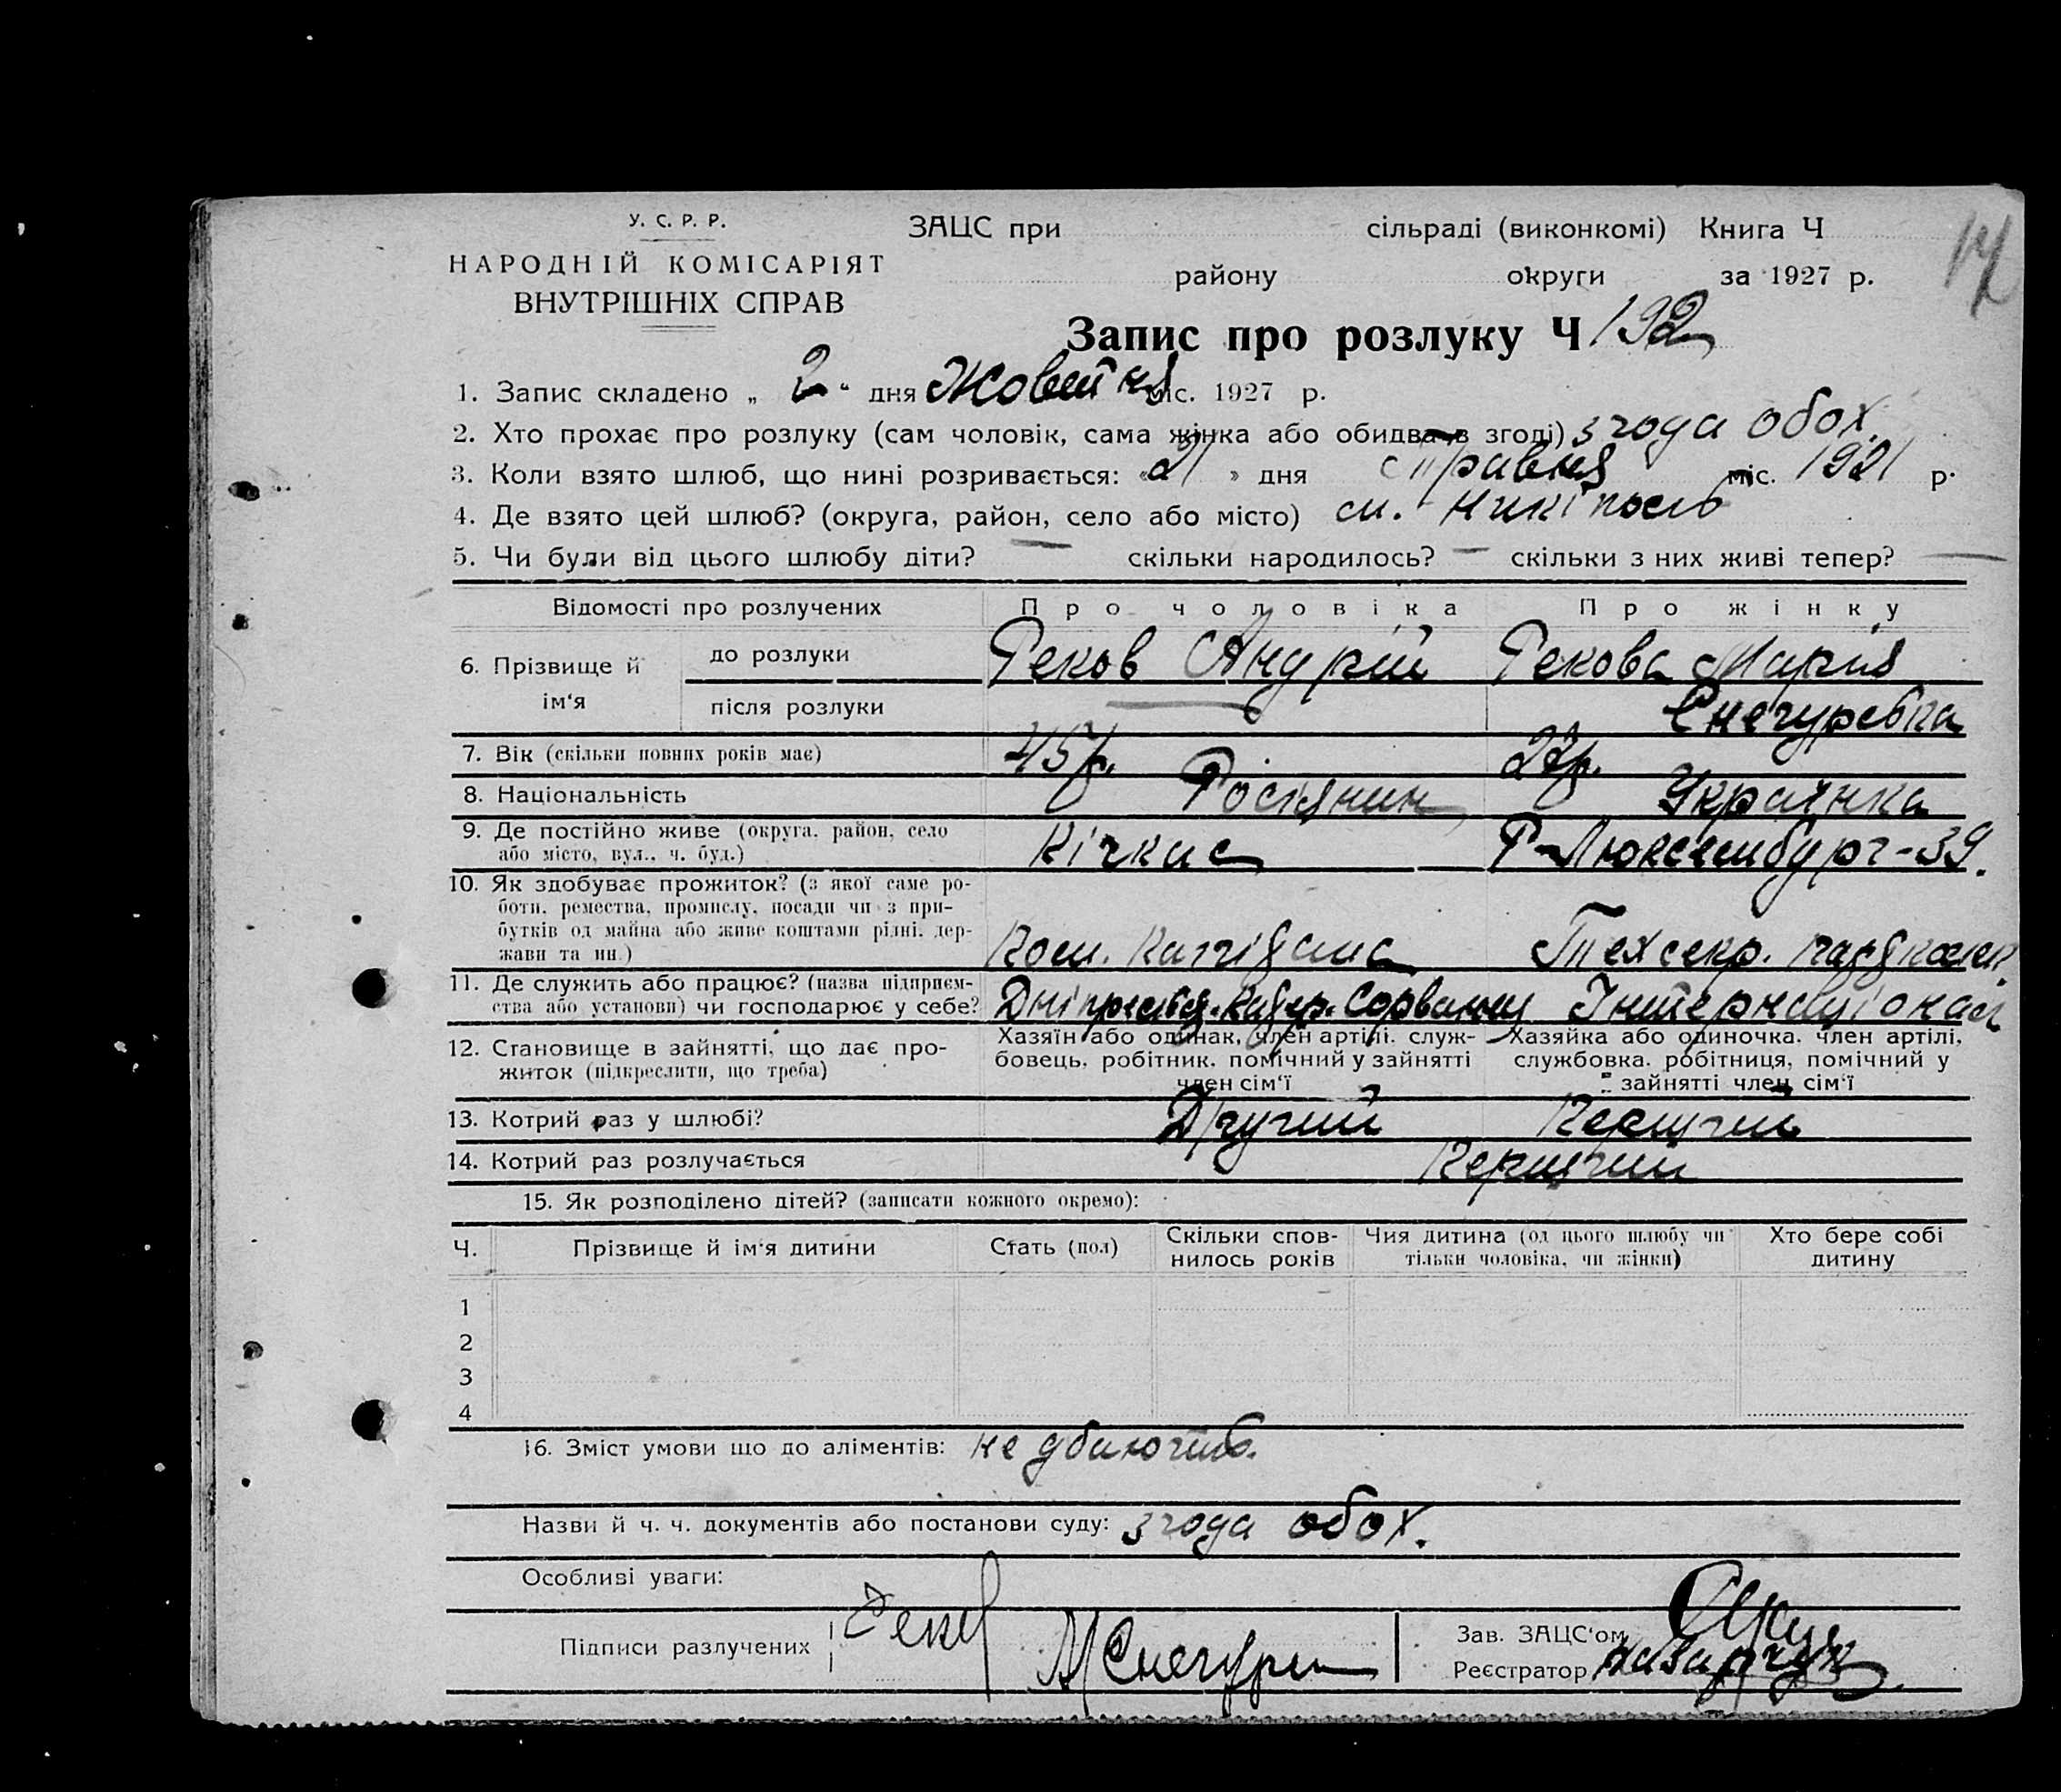 17
У. С. Р. Р.
НАРОДНІЙ КОМІСАРІЯТ
ВНУТРІШНІХ СПРАВ
ЗАЦС при сільраді (виконкомі) Книга Ч
району округи за 1927 р.
Запис про розлуку Ч 192
1. Запис складено „ 2 “ дня Жовтня міс. 1927 р.
2. Хто прохає про розлуку (сам чоловік, сама жінка або обидва в згоді) згода обох
3. Коли взято шлюб, що нині розривається: «21» дня травня міс. 1921 р.
4. Де взято цей шлюб? (округа, район, село або місто) см. Никіполь
5. Чи були від цього шлюбу діти? — скільки народилось? — скільки з них живі тепер? —
Відомості про розлучених Про чоловіка Про жінку
6. Прізвище й ім‘я
до розлуки Реков Андрій Рекова Марія
після розлуки — Снегуревка
7. Вік (скільки повних років має) 45 р. 27 р.
8. Національність Росіянин Українка
9. Де постійно живе (округа, район, село або місто, вул., ч. буд.) Кічкас Р-Люксембург-39.
10. Як здобуває прожиток? (з якої саме ро-
боти, ремества, промислу, посади чи з при-
бутків од майна або живе коштами рідні, дер-
жави та ин.) Техсекр.
11. Де служить або працює? (назва підприєм-
ства або установи) чи господарює у себе? Інтернаціонал
12. Становище в зайнятті, що дає про-
житок (підкреслити, що треба)
Хазяїн або одинак, член артілі, служ-
бовець, робітник, помічний у зайнятті
член сім‘ї
Хазяйка або одиночка, член артілі,
службовка, робітниця, помічний у
зайнятті член сім‘ї
13. Котрий раз у шлюбі? Другий Перший
14. Котрий раз розлучається Перший
15. Як розподілено дітей? (записати кожного окремо):
Ч. Прізвище й ім‘я дитини Стать (пол) Скільки спов-
нилось років Чия дитина (од цього шлюбу чи
тільки чоловіка, чи жінки) Хто бере собі
дитину
1
2
3
4
16. Зміст умови що до аліментів:
Назви й ч. ч. документів або постанови суду: згода обох.
Особливі уваги:
Підписи разлучених Реков МСнегур
Зав. ЗАЦС‘ом
Реєстратор Назарчук